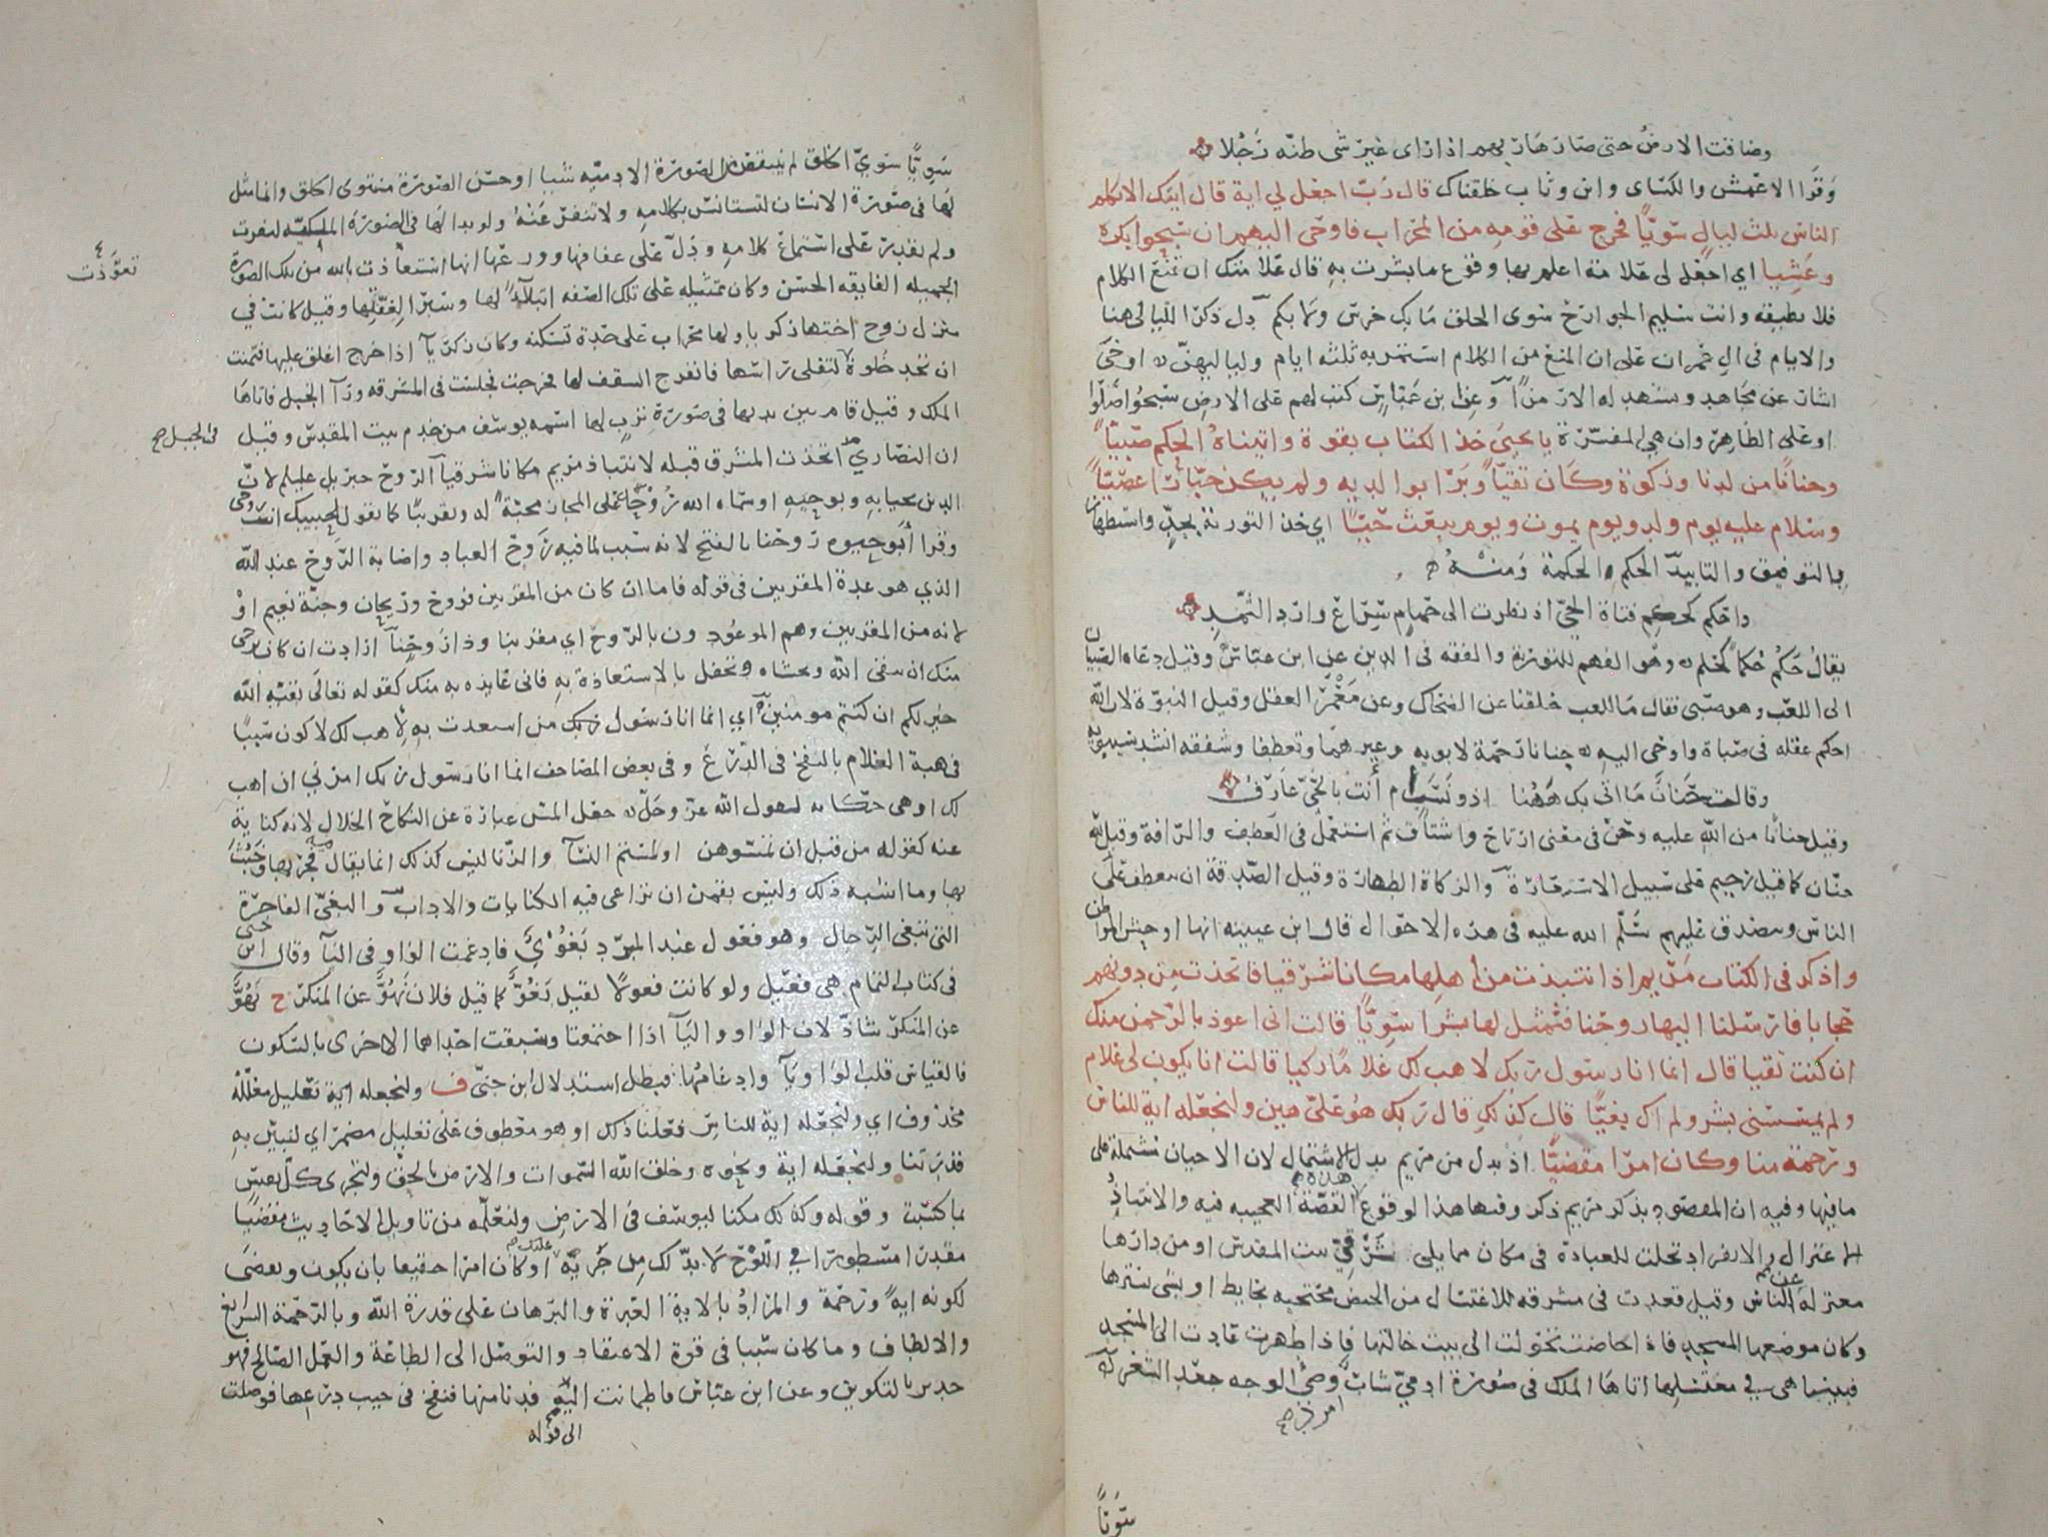 وضاقت الارض حتى صار هاربهم اذا راى غير شى ظنه رجلا
وقرا الاعمش والكساى وابن وثاب خلقناك قال رب اجعل لي اية قال ايتك الا تكلم
الناس ثلث ليال سويا فخرج على قومه من المحراب فاوحى اليهم ان سبحوا بكرة
وعشيا اي اجعل لى علامة اعلم بها وقوع ما بشرت به قال علامتك ان تمنع الكلام
فلا تطيقه وانت سليم الجوارح سوى الخلق ما بك خرس ولا بكم دل ذكر الليالى هنا
والايام فى ال عمران على ان المنع من الكلام استمر به ثلثة ايام ولياليهن اوحى
اشار عن مجاهد ويشهد له الا رمزا وعن ابن عباس كتب لهم على الارض سبحوا صلوا
او على الظاهر وان هي المفسرة يا يحيى خذ الكتاب بقوة واتيناه الحكم صبيا
وحنانا من لدنا وزكوة وكان تقيا وبرا بوالديه ولم يكن جبارا عصيا
وسلام عليه يوم ولد ويوم يموت ويوم يبعث حيا اي خذ التورية بجد واستظهار
بالتوفيق والتاييد الحكم الحكمة ومنه
واحكم كحكم فتاة الحي اذ نظرت الى حمام سراع وارد الثمد
يقال حكم حكما كحلم وهو الفهم للتورية والفقه فى الدين عن ابن عباس وقيل دعاه الصبيان
الى اللعب وهو صبى فقال ما للعب خلقنا عن الضحاك وعن معمر العقل وقيل النبوة لان الله
احكم عقله فى صباه واوحى اليه حنانا رحمة لابويه وغيرهما وتعطفا وشفقه انشد سيبويه
وقالت حنان ما اتى بك ههنا اذو نسب ام أنت بالحي عارف
وقيل حنانا من الله عليه وحن فى معنى ارتاح واشتاق ثم استعمل فى العطف والرافة وقيل لله
حنان كما قيل رحيم على سبيل الاستعارة والزكاة الطهارة وقيل الصدقة اى يتعطف على
الناس ويصدق عليهم سلم الله عليه فى هذه الاحوال قال ابن عيينه انها اوحش المواطن
واذكر فى الكتاب مريم اذ انتبذت من أهلها مكانا شرقيا فاتخذت من دونهم
حجابا فارسلنا اليها روحنا فتمثل لها بشرا سويا قالت انى اعوذ بالرحمن منك
ان كنت تقيا قال انما انا رسول ربك لاهب لك غلاما زكيا قالت انا يكون لى غلام
ولم يمسسنى بشر ولم اك بغيا قال كذلك قال ربك هو على هين ولنجعله اية للناس
ورحمة منا وكان امرا مقضيا اذ بدل من مريم بدل الاشتمال لان الاحيان مشتملة على
ما فيها وفيه ان المقصود بذكر مريم ذكر وقتها هذا لوقوع هذه القصة العجيبه فيه والانتباذ
الاعتزال والانفراد تخلت للعبادة فى مكان مما يلى شرقي بيت المقدس او من دارها
معتزلة عن الناس وقيل قعدت فى مشرقه للاغتسال من الحيض محتجبه بحايط او بشى يسترها
وكان موضعها المسجد فاذا حاضت تحولت الى بيت خالتها فاذا طهرت عادت الى المسجد
فبينما هى في مغتسلها اتاها الملك فى صورة ادمي شاب امرد وضي الوجه جعد الشعر
سويا
سويا سوي الخلق لم ينتقص من الصورة الادميه شيا او حسن الصورة مستوى الخلق وانما مثل
لها فى صورة الانسان لتستانس بكلامه ولا تنفر عنه ولو بدا لها فى الصورة الملكيه لنفرت
ولم تقدر على استماع كلامه ودل على عفافها وورعها انها استعاذت بالله من تلك الصورة
تعوذت
الجميله الفايقه الحسن وكان تمثيله على تلك الصفه ابتلاء لها وسبرا لعفتها وقيل كانت في
منزل زوج اختها زكريا ولها محراب على حدة تسكنه وكان زكريا اذا خرج اغلق عليها فتمنت
ان تجد خلوة لتفلى راسها فانفرج السقف لها فخرجت فجلست فى المشرقه ورا الجبل فاتاها
فى الجبل صح
الملك وقيل قام بين يديها فى صورة ترب لها اسمه يوسف من خدم بيت المقدس وقيل
ان النصارى اتخذت المشرق قبله لانتباذ مريم مكانا شرقيا الروح جبريل عليلم لان
الدين يحيا به وبوحيه او سماه الله روحا على المجاز محبة له وتقريبا كما تقول لحبيبك انت روحى
وقرا أبو حيوه روحنا بالفتح لانه سبب لما فيه روح العباد واصابة الروح عند الله
الذي هو عدة المقربين فى قوله فاما ان كان من المقربين فروح وريحان وجنة نعيم او
لانه من المقربين وهم الموعودون بالروح اي مقربنا وذا روحنا ارادت ان كان يرجى
منك ان تتقى الله وتخشاه وتحفل بالاستعاذة به فانى عايذه به منك كقوله تعالى بقيه الله
خير لكم ان كنتم مومنين اي انما انا رسول ربك من استعذت به لاهب لك لاكون سببا
فى هبة الغلام بالنفخ فى الدرع وفى بعض المصاحف انما انا رسول ربك امرنى ان اهب
لك او هى حكاية لقول الله عز وجل جعل المس عبارة عن النكاح الحلال لانه كناية
عنه كقوله من قبل ان تمسوهن او لمستم النسا والزنا ليس كذلك انما يقال فيه فجر بها وخبث
بها وما اشبه ذلك وليس بقمن ان تراعى فيه الكنايات والاداب والبغي الفاجرة
التى تبغى الرجال وهو فعول عند المبرد بغوي فادغمت الواو فى اليا وقال ابن جنى
فى كتاب التمام هى فعيل ولو كانت فعولا لقيل بغو كما قيل فلان نهو عن المنكر ح نهو
عن المنكر شاذ لان الواو واليا اذا اجتمعتا وسبقت احداهما الاخرى بالسكون
فالقياس قلب الواو يا وادغامها فبطل استدلال ابن جنى ف ولنجعله اية تعليل معلله
محذوف اي ولنجعله اية للناس فعلنا ذلك او هو معطوف على تعليل مضمر اي لنبين به
قدرتنا ولنجعله اية ونحوه وخلق الله السموات والارض بالحق ولتجزى كل نفس
بما كسبت وقوله وكذلك مكنا ليوسف فى الارض ولنعلمه من تاويل الاحاديث مقضيا
مقدرا مسطورا في اللوح لا بد لك من جريه عليك او كان امرا حقيقا بان يكون ويقضى
لكونه اية ورحمة والمراد بالاية العبرة والبرهان على قدرة الله وبالرحمة الشرايع
والالطاف وما كان سببا فى قوة الاعتقاد والتوصل الى الطاعة والعمل الصالح فهو
جدير بالتكوين وعن ابن عباس فاطمانت الى قوله فدنا منها فنفخ فى جيب درعها فوصلت